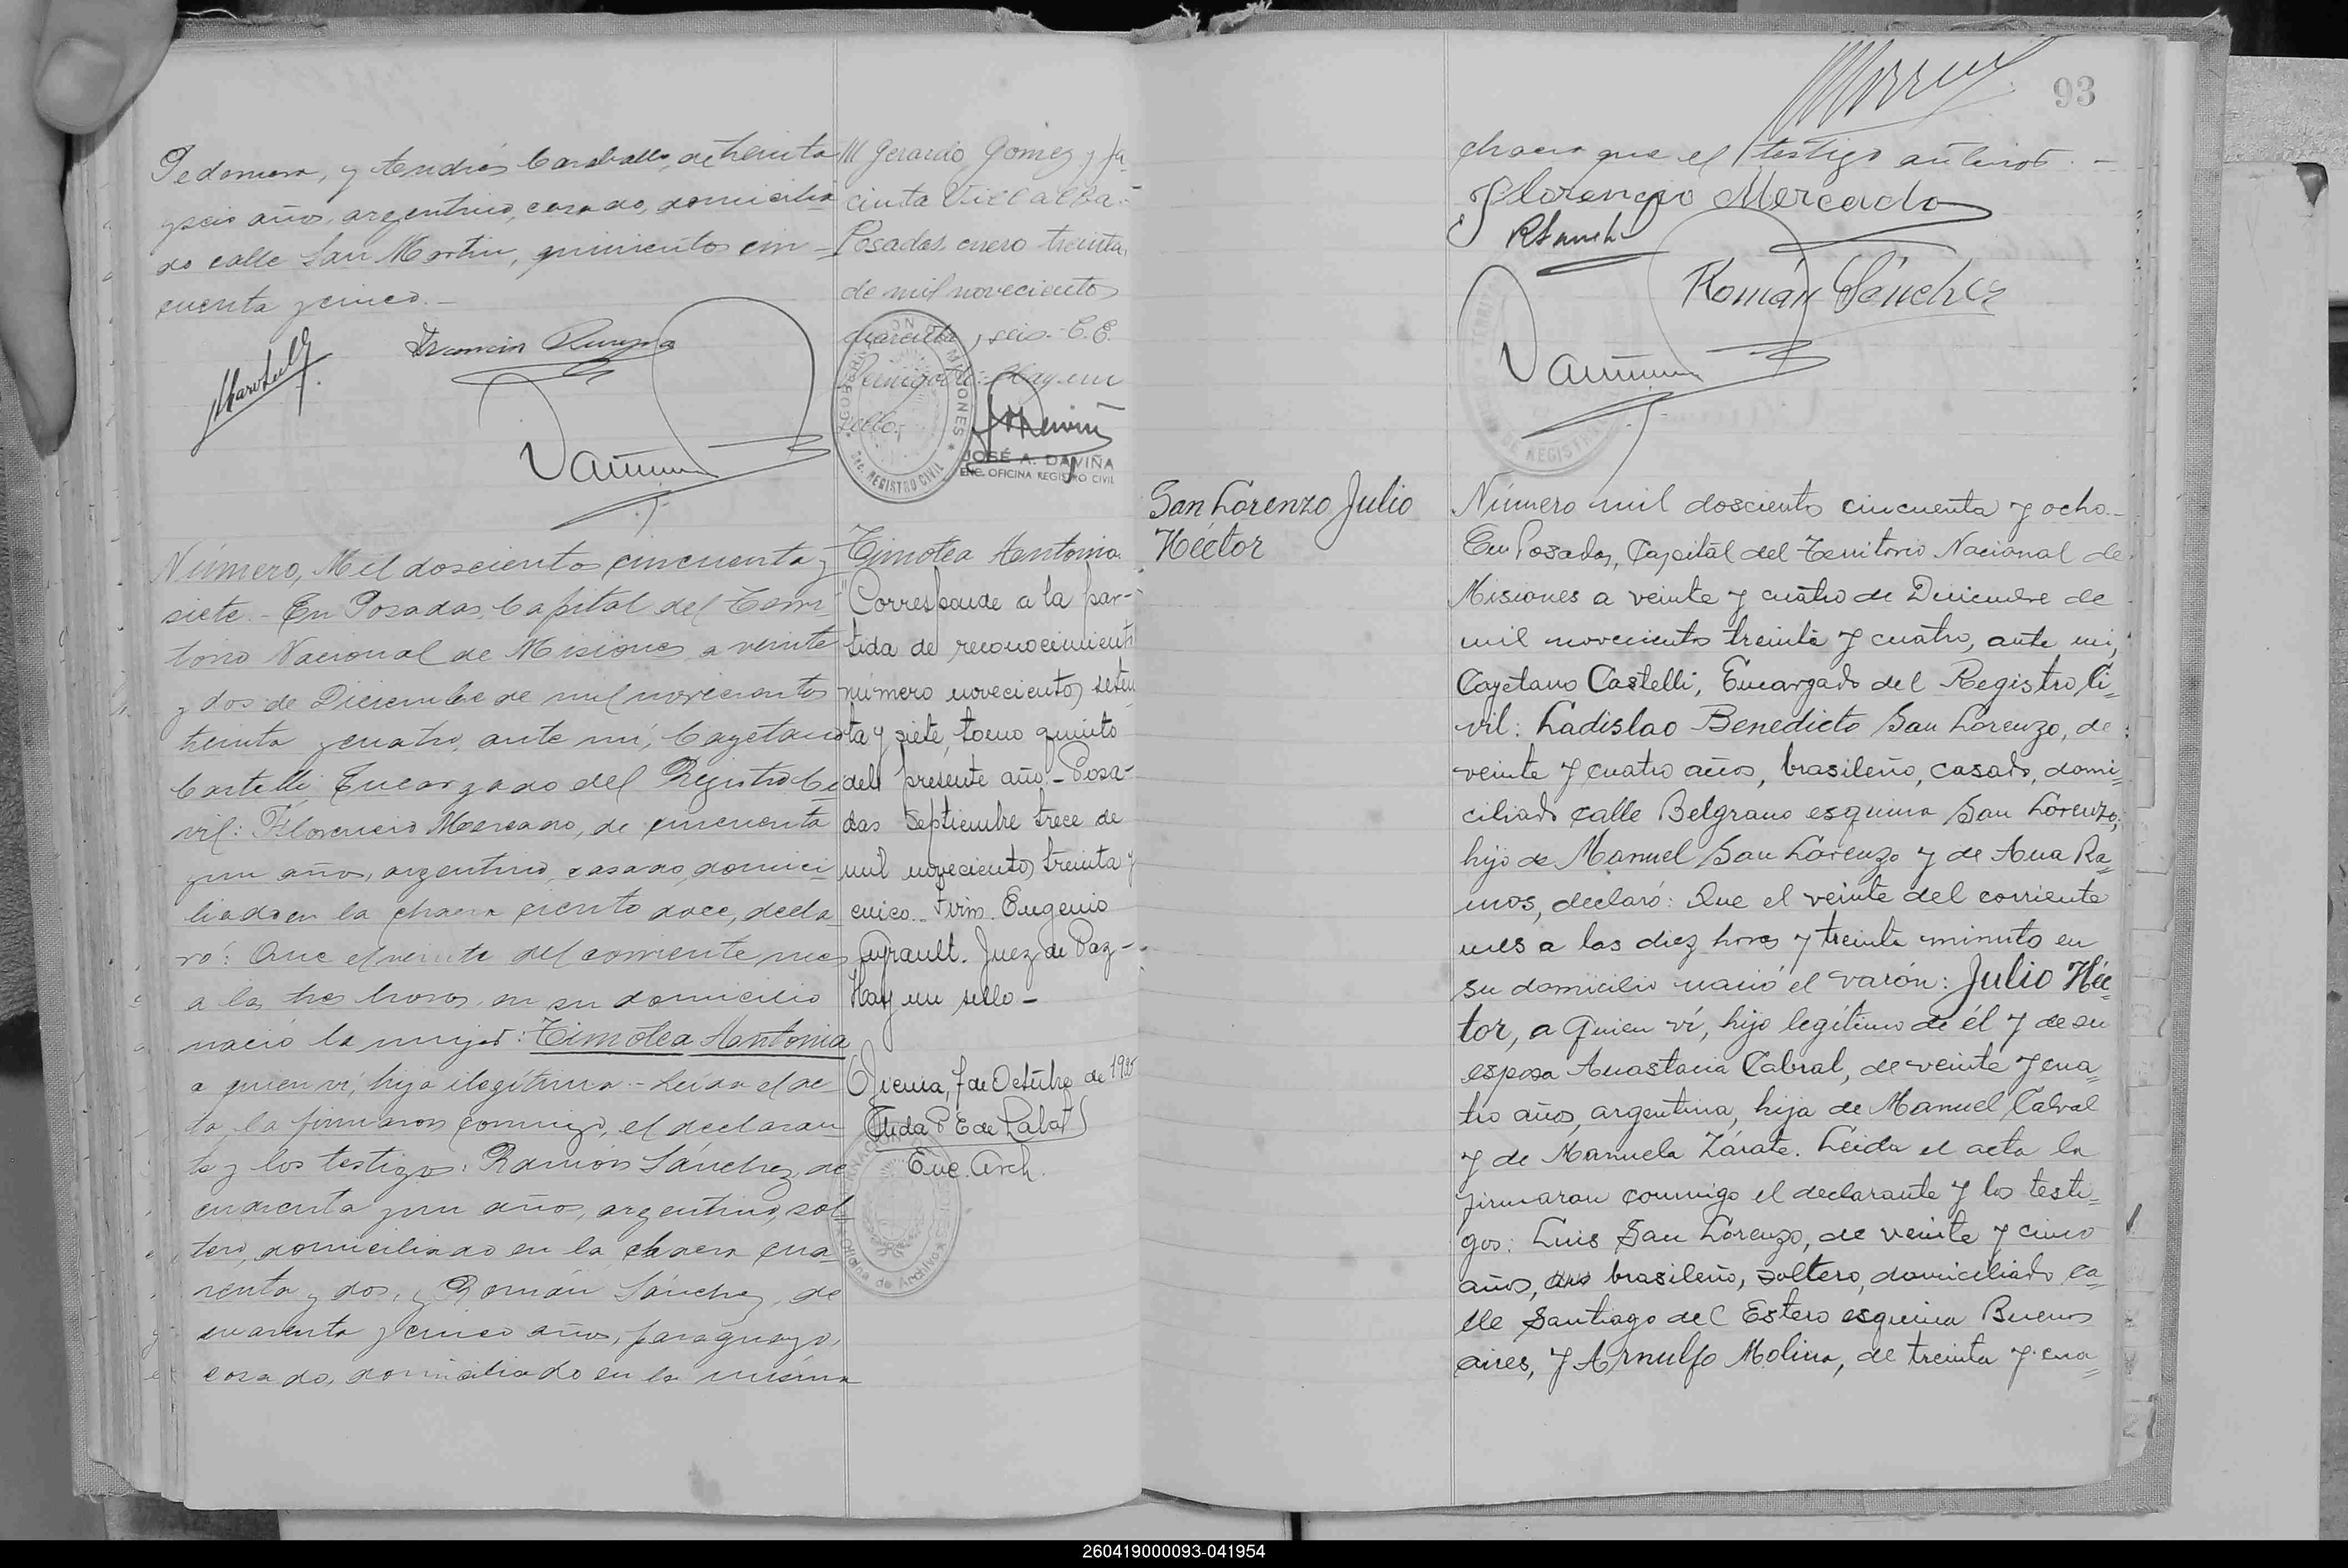 Pedomera, y Andrés Caraballo, de treinta
y seis años, argentino, casado, domicilia
do calle San Martin, quinientos cin-
cuenta y cinco.-
Número, Mil doscientos cincuenta y
siete.- En Posadas, Capital del Terri
torio Nacional de Misiones, a veinte
y dos de Diciembre de mil novecientos
treinta y cuatro, ante mí, Cayetano
Castelli Encargado del Registro Ci
vil: Florencio Mercado, de cincuenta
y un años, argentino, casado, domici
liado en la chacra ciento doce, decla
ró: Que el veinte del corriente mes
a las tres horas en su domicilio
nació la mujer: Timotea Antonia
a quien ví, hija ilegítima.- Leída el ac-
ta, la firmaron conmigo, el declaran-
te y los testigos: Ramón Sánchez, de
cuarenta y un años, argentino, sol
tero, domiciliado en la chacra cua
renta y dos, y Román Sánchez, de
cuarenta y cinco años, paraguayo,
casado, domiciliado en la misma
/// Gerardo Gomez y Ja-
cinta Villalba.-
Posadas, enero treinta,
de mil novecientos
cuarenta y seis.- C. E.
Hay un
sello.
JOSÉ A. DAVIÑA
ENC. OFICINA REGISTRO CIVIL
Timotea Antonia
Corresponde a la par-
tida de reconocimiento
número novecientos seten
ta y siete, tomo quinto
del presente año.- Posa-
das Septiembre trece de
mil novecientos treinta y
cinco.- Firm. Eugenio
Ayrault. Juez de Paz-
Hay un sello-
7 de Octubre de 1935
Enc. Arch.
93
chacra que el testigo anterior.-
Florencio Mercado
RSanch
Román Sánchez
San Lorenzo Julio
Héctor
Número mil doscientos cincuenta y ocho.-
En Posadas, Capital del Territorio Nacional de
Misiones a veinte y cuatro de Diciembre de
mil novecientos treinta y cuatro, ante mi,
Cayetano Castelli, Encargado del Registro Ci=
vil: Ladislao Benedicto San Lorenzo, de
veinte y cuatro años, brasileño, casado, domi=
ciliado calle Belgrano esquina San Lorenzo;
hijo de Manuel San Lorenzo y de Ana Ra=
mos, declaró: Que el veinte del corriente
mes a las diez horas y treinta minuto en
su domicilio nació el varón: Julio Héc=
tor, a quien ví, hijo legítimo de él y de su
esposa Anastacia Cabral, de veinte y cua=
tro años, argentina, hija de Manuel Cabral
y de Manuela Zárate. Leída el acta la
firmaron conmigo el declarante y los testi=
gos: Luis San Lorenzo, de veinte y cinco
años, brasileño, soltero, domiciliado ca=
lle Santiago del Estero esquina Buenos
aires, y Arnulfo Molina, de treinta y cua=
260419000093-041954